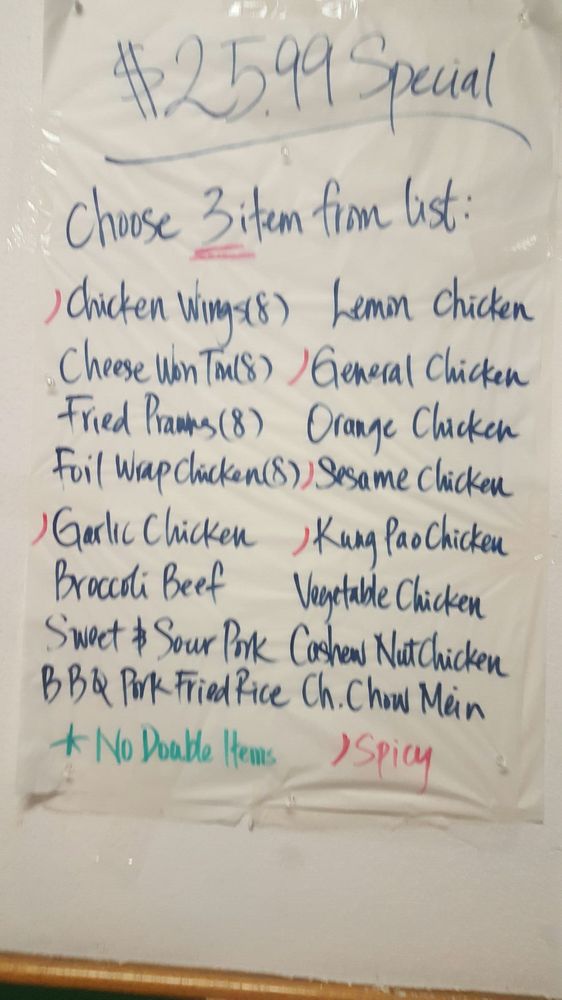 $25.99 Special
Choose 3 item from list:
)Chicken Wings(8) Lemon Chicken
Cheese Won Ton(8) )General Chicken
Fried Prawns(8) Orange Chicken
Foil Wrap Chicken(8) )Sesame Chicken
)Garlic Chicken )Kung Pao Chicken
Broccoli Beef Vegetable Chicken
Sweet & Sour Pork Cashew Nut Chicken
BBQ Pork Fried Rice Ch. Chow Mein
*No Double Items )Spicy